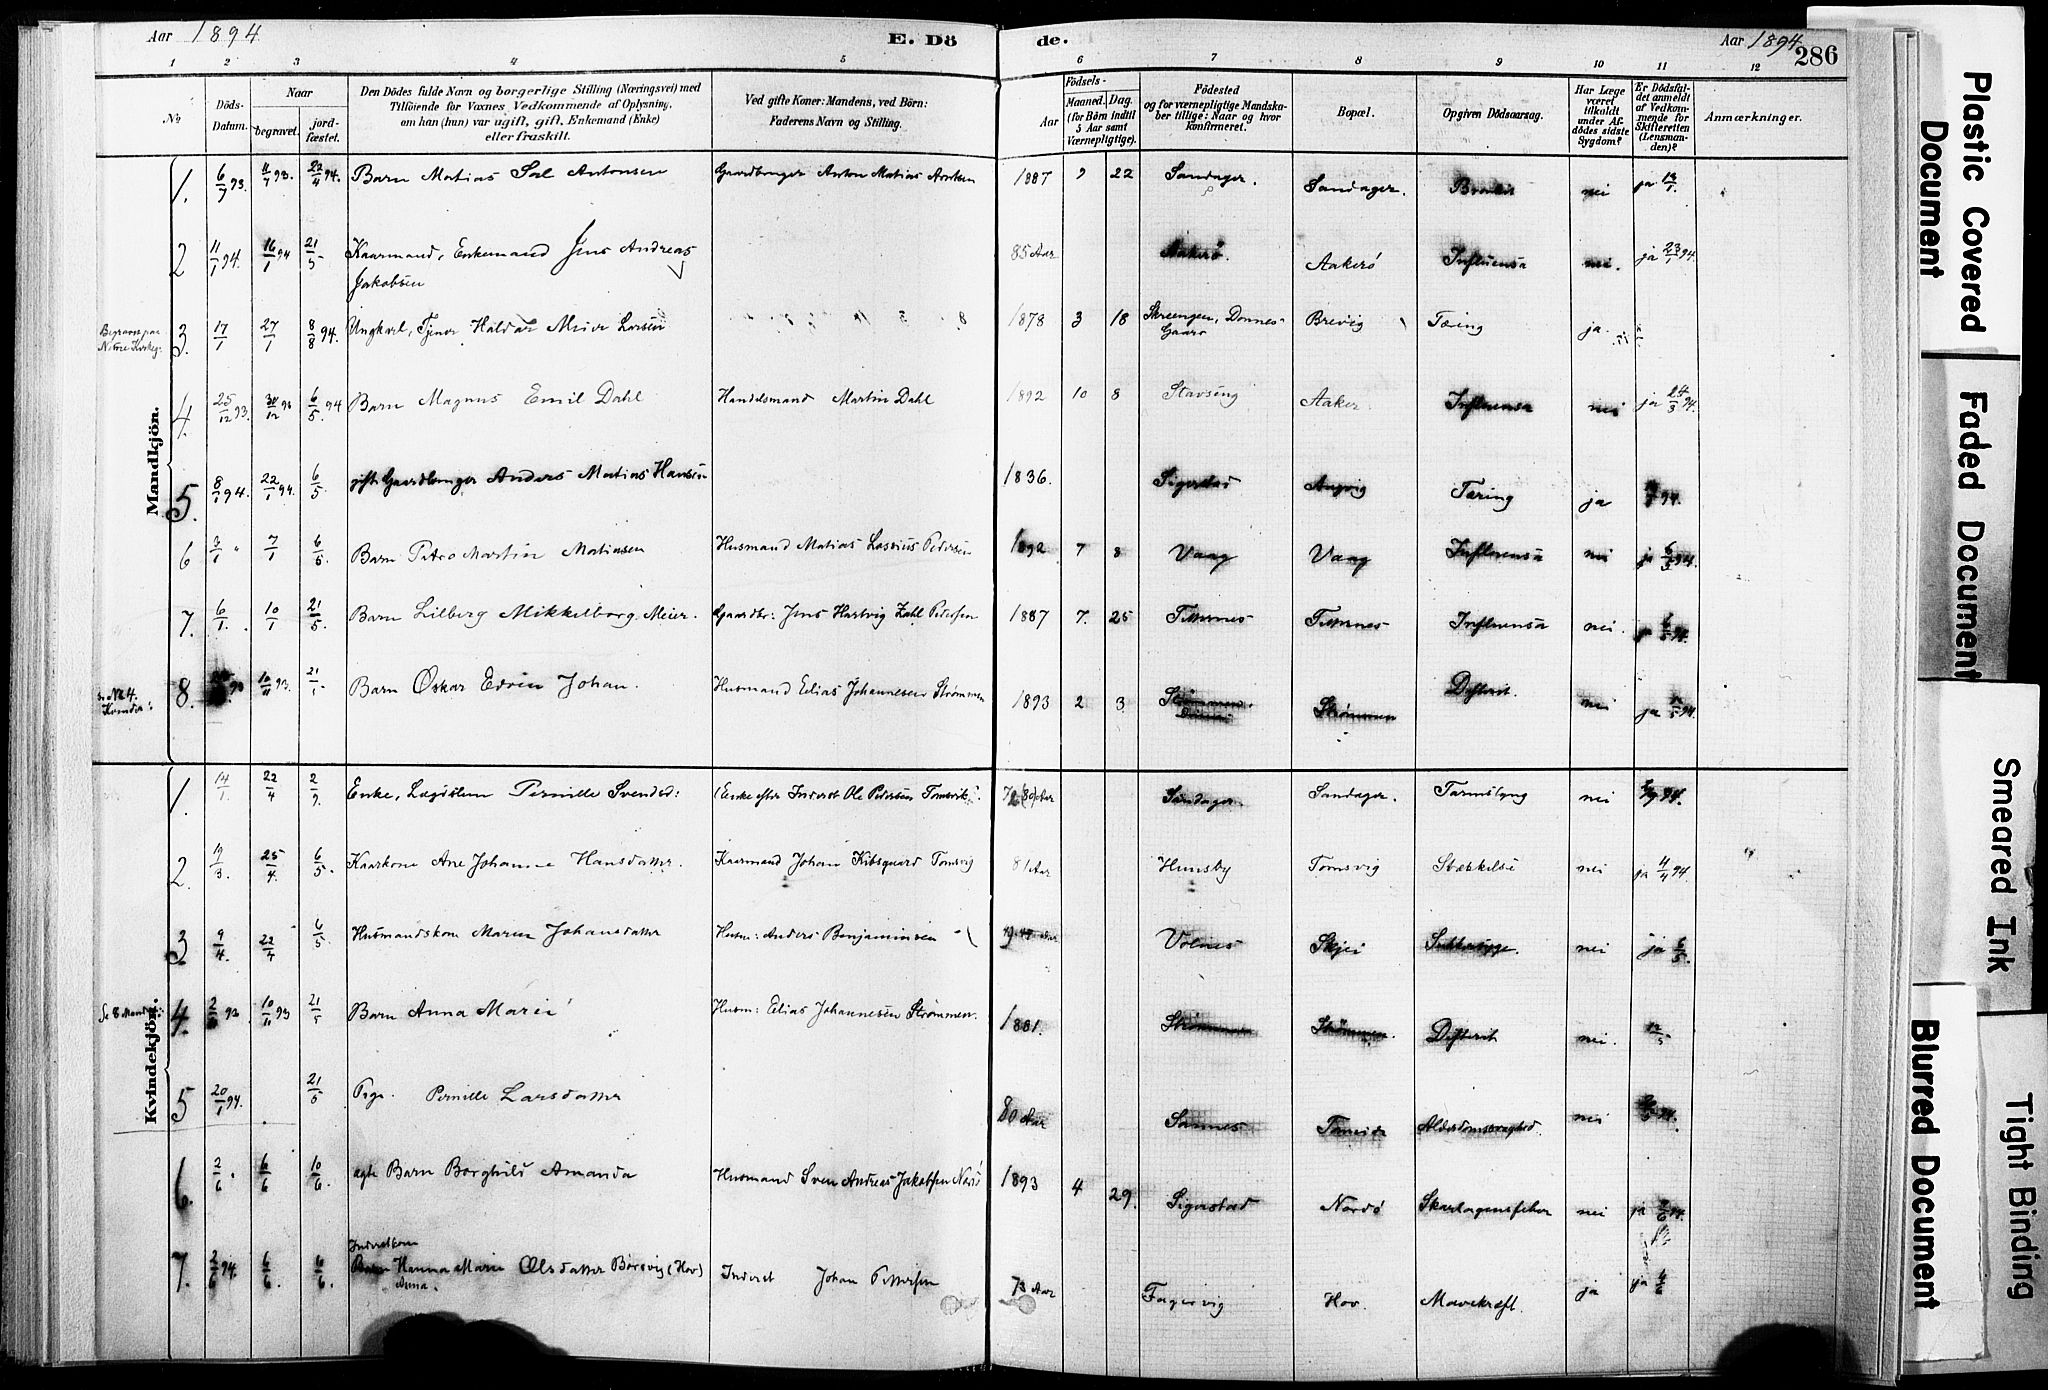 Aar 1894
E. Döde.
Aar 1894
286
1 2 3 4 5 6 7 8 9 10 11 12
No
Döds-Datum.
Naar
begravet.
jord-fæstet.
Den Dödes fulde Navn og borgerlige Stilling (Næringsvei) med
Tilföiende for Voxnes Vedkommende af Oplysning,
om han (hun) var ugift, gift, Enkemand (Enke)
eller fraskilt.
Ved gifte Koner: Mandens, ved Börn:
Faderens Navn og Stilling.
Födsels-
Aar
Maaned. Dag.
(for Börn indtil
5 Aar samt
Værnepligtige).
Födested
og for værnepligtige Mandska-
ber tillige: Naar og hvor
konfirmeret.
Bopæl.
Opgiven Dödsaarsag.
Har Læge
været
tilkaldt
under Af-
dödes sidste
Sygdom?
Er Dödsfal-
det anmeldt
af Vedkom-
mende for
Skifteretten
(Lensman-
den)?
Anmærkninger.
Mandkjön.
1. 6/7 93. 11/7 93. 22/4 94. Barn Matias Sal Antonsen Gaardbruger Anton Matias 1887 9 22 Sandager. Sandager. nei ja
2 11/1 94. 16/1 94 21/5 Kaarmand, Enkemand Jens Andreas
Jakobsen 85 Aar Aakerö. Aakerö Influensa nei. ja 23/1 94.
3. 17/1 27/1 8/8 94. Ungkarl, Tjener Haldar Meier Larsen 1878 3 18 Dønnes-
Gaard Brevig Tæring ja.
4. 25/12 93. 94 6/5 Barn Magnus Emil Dahl Handelsmand Martin Dahl 1892 10 8 Stavseng Aaker Influensa nei ja 24/3 94.
5. 8/1 94. 22/1 94. 6/5 gift Gaardbruger Anders Matias Hansen 1836. Sigerstad Angvig Tæring ja 94.
6 3/1 " 7/1 6/5 Barn Petro Martin Matiasen Husmand Matias Lassius Pedersen 1892 7 8 Vaag Vaag Influensa nei ja 6/5 94.
7. 6/1. 10/1 21/5. Barn Lilberg Mikkelborg Meier. Gaardbr: Jens Hartvig Zahl Pedersen 1887 7. 25 Titternes Titternes Influensa nei. ja 6/5 94.
s. No 4.
Kvinder:
8. 93 10/11 93. 21/5 Barn Oskar Edvin Johan. Husmand Elias Johannesen Strømmen 1893 2 3 Strømmen.
Dønnes Strømmen Difterit. nei ja 94.
Kvindekjön.
1. 14/1. 22/4 2/9. Enke, Lægdslem Pernille Svendsd: (Enke efter Inderst Ole Pedersen Tomsvik). Sandager Sandager. Tarmslyng nei 94.
2. 19/3. 25/4. 6/5. Kaarkone Ane Johanna Hansdatter. Kaarmand Johan Kibsgaard Tomsvig 81 Aar Hunsby Tomsvig Stækkelse nei ja 4/4 94.
3. 9/4. 22/4 6/5 Husmandskone Maren Johansdatter Husm: Anders Benjaminsen Volnes Skjei nei ja 6/5.
Se 8 Mand:
4. 93 10/11 93 21/5 Barn Anna Marie Husm: Elias Johannesen Strømmen. 1881. Strømmen Strømmen. Difterit nei. 12/5
5 20/1 94. 21/5 Pige. Pernille Larsdatter 80 Aar Sannes Alderdomssvaghed nei 94.
6. 2/6 " 6/6 10/6. ægte Barn Borghild Amanda Husmand Sven Andreas Jakobsen Nordö 1893 4 29. Sigerstad Nordö Skarlagensfeber nei ja 94.
Inderstkone
7. 2/6 94. 6/6. 6/6. Hanna Marie Olsdatter Borsvig (Hov)
Anna. Inderst Johan Pettersen 73 Aar Fagervig Hov. Mavekræft. ja ja 4/6
Plastic Covered
Document
Faded Document
Smeared Ink
Blurred Document
Tight Binding